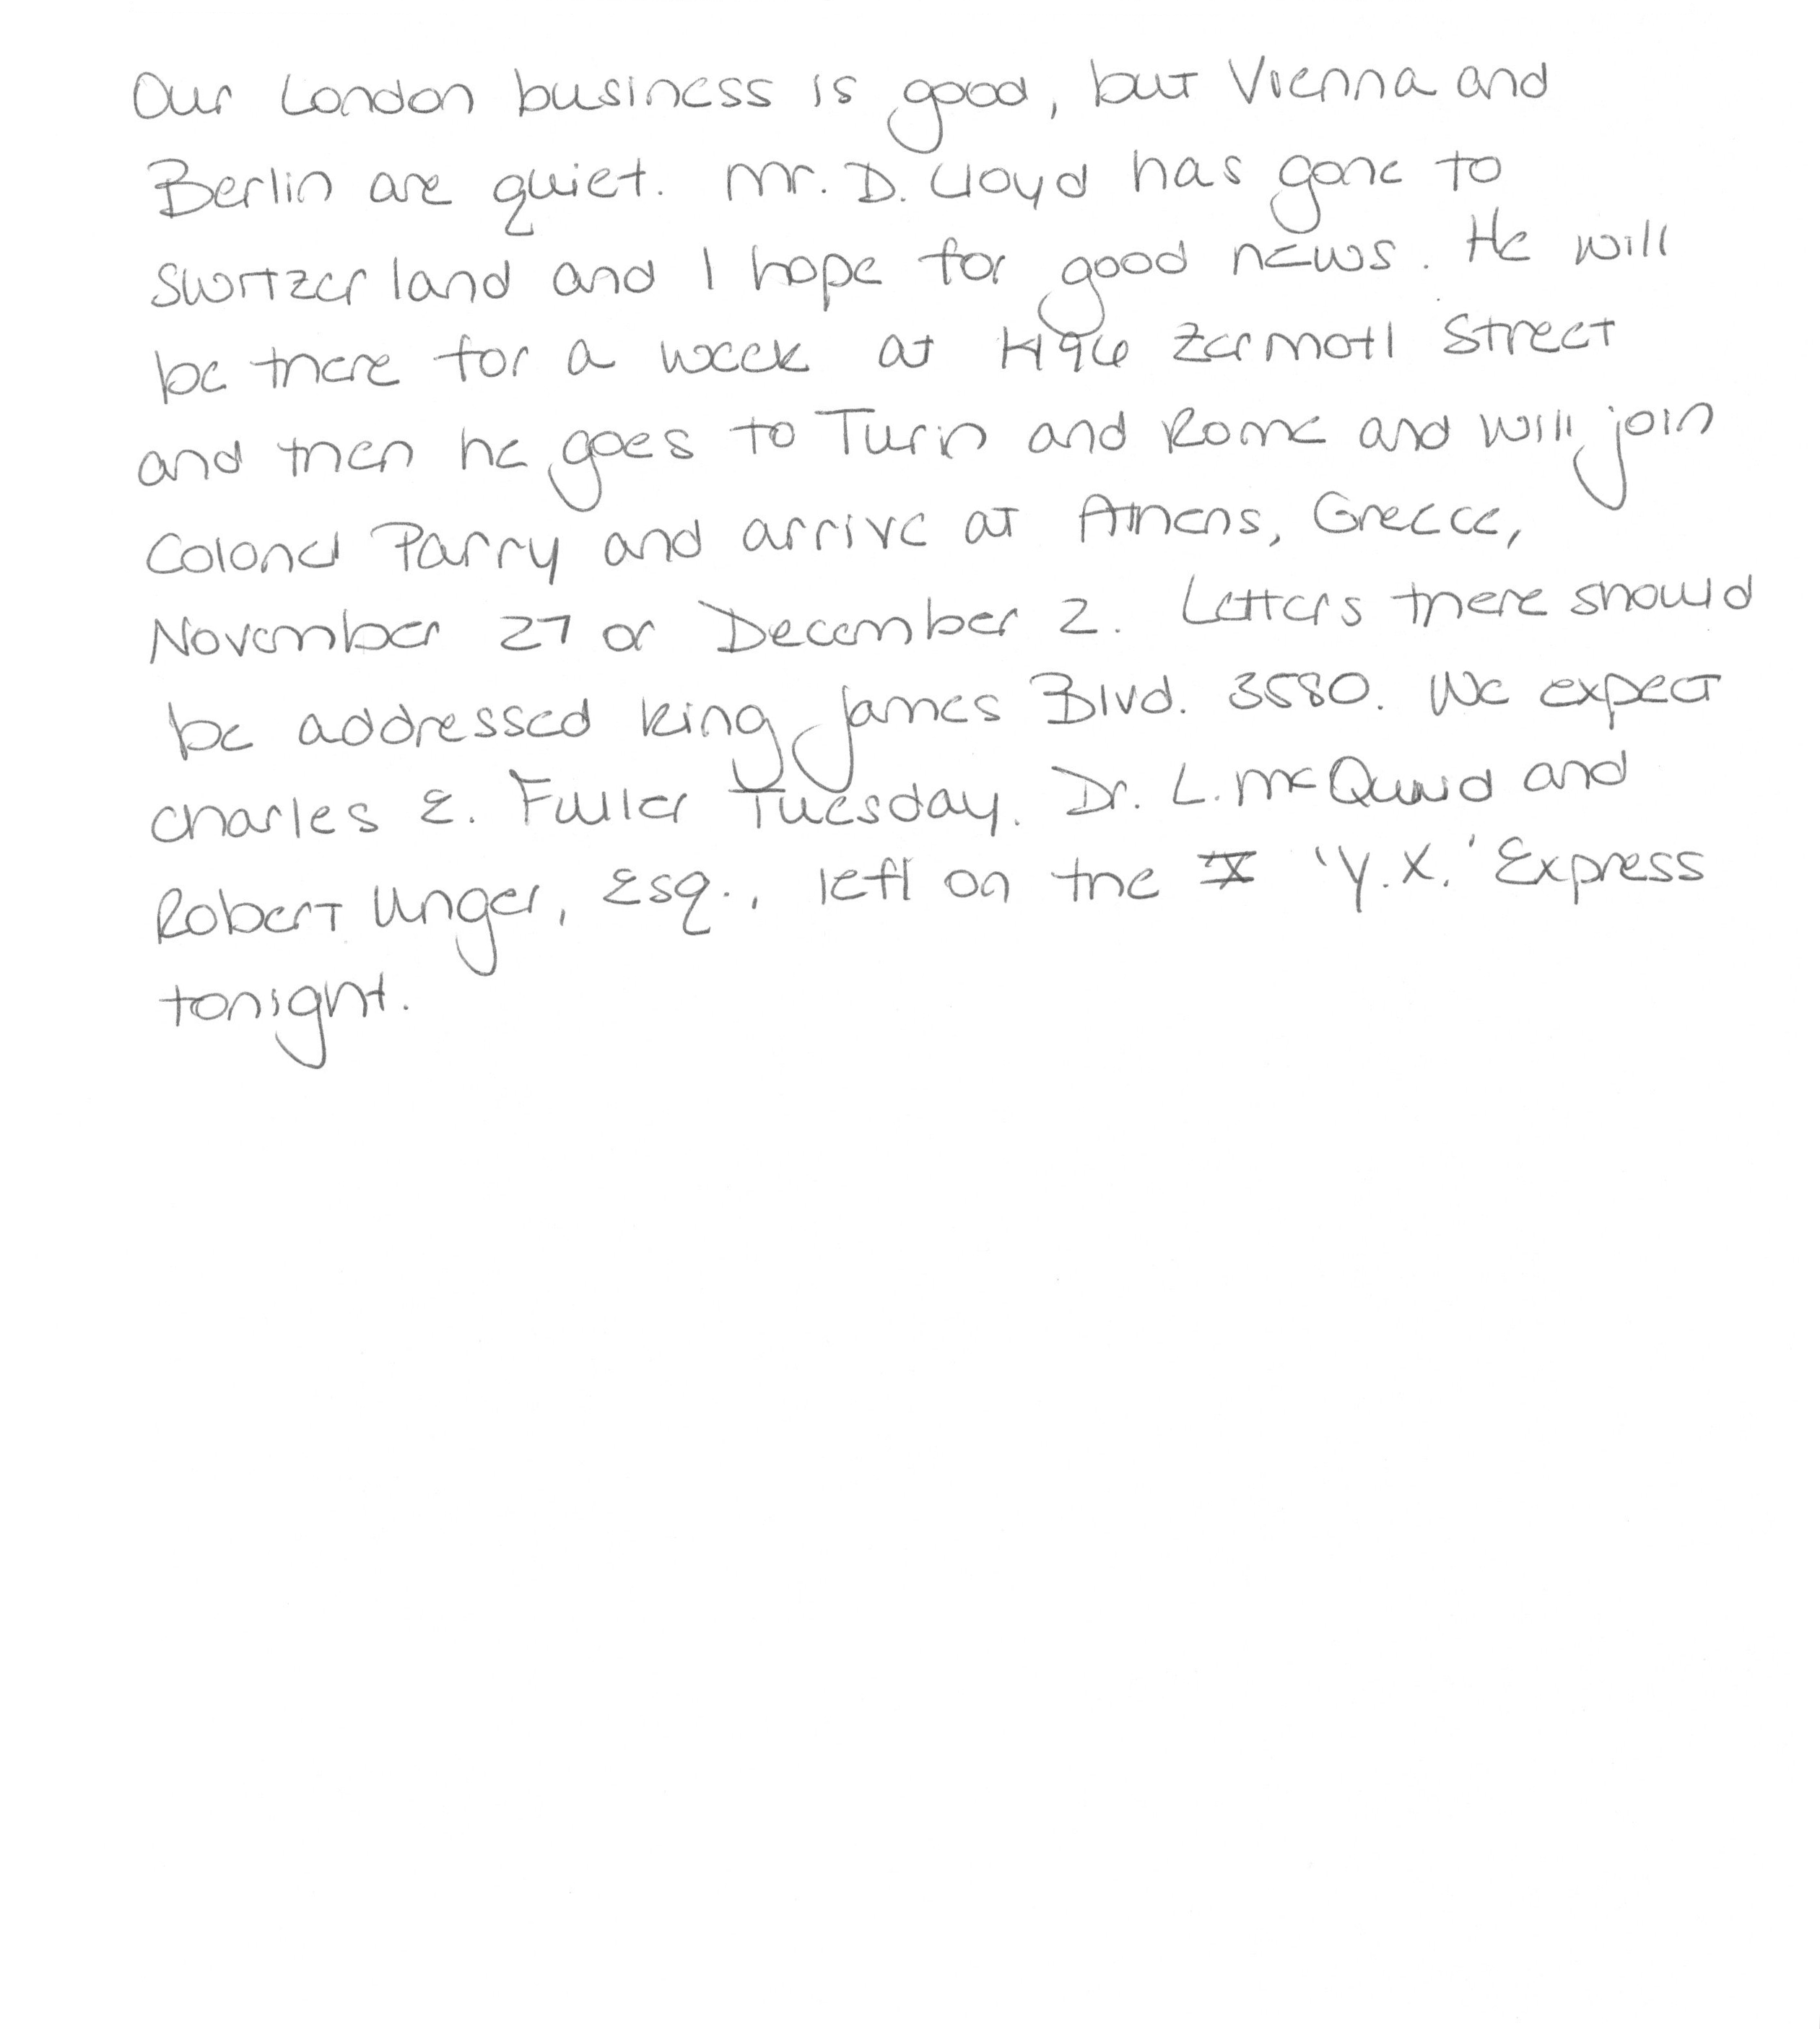 Our London business is good, but Vienna and
Berlin are quiet. Mr. D. Lloyd has gone to
Switzerland and I hope for good news. He will
be there for a week at 1496 Zermott Street
and then he goes to Turin and Rome and will join
Colonel Parry and arrive at Athens, Greece,
November 27 or December 2. Letters there should
be addressed King James Blvd. 3580. We expect
Charles E. Fuller Tuesday. Dr. L. McQuaid and
Robert Unger, Esq., left on the 'Y.X.' Express
tonight.